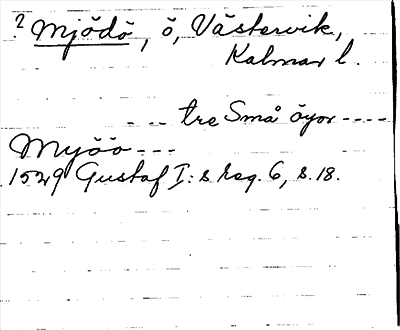 ? Mjödö, ö, Västervik,
Kalmar l.
--- tre Små öyor ----
Myöö ---
1529 Gustaf I:s Reg. 6, s. 18.